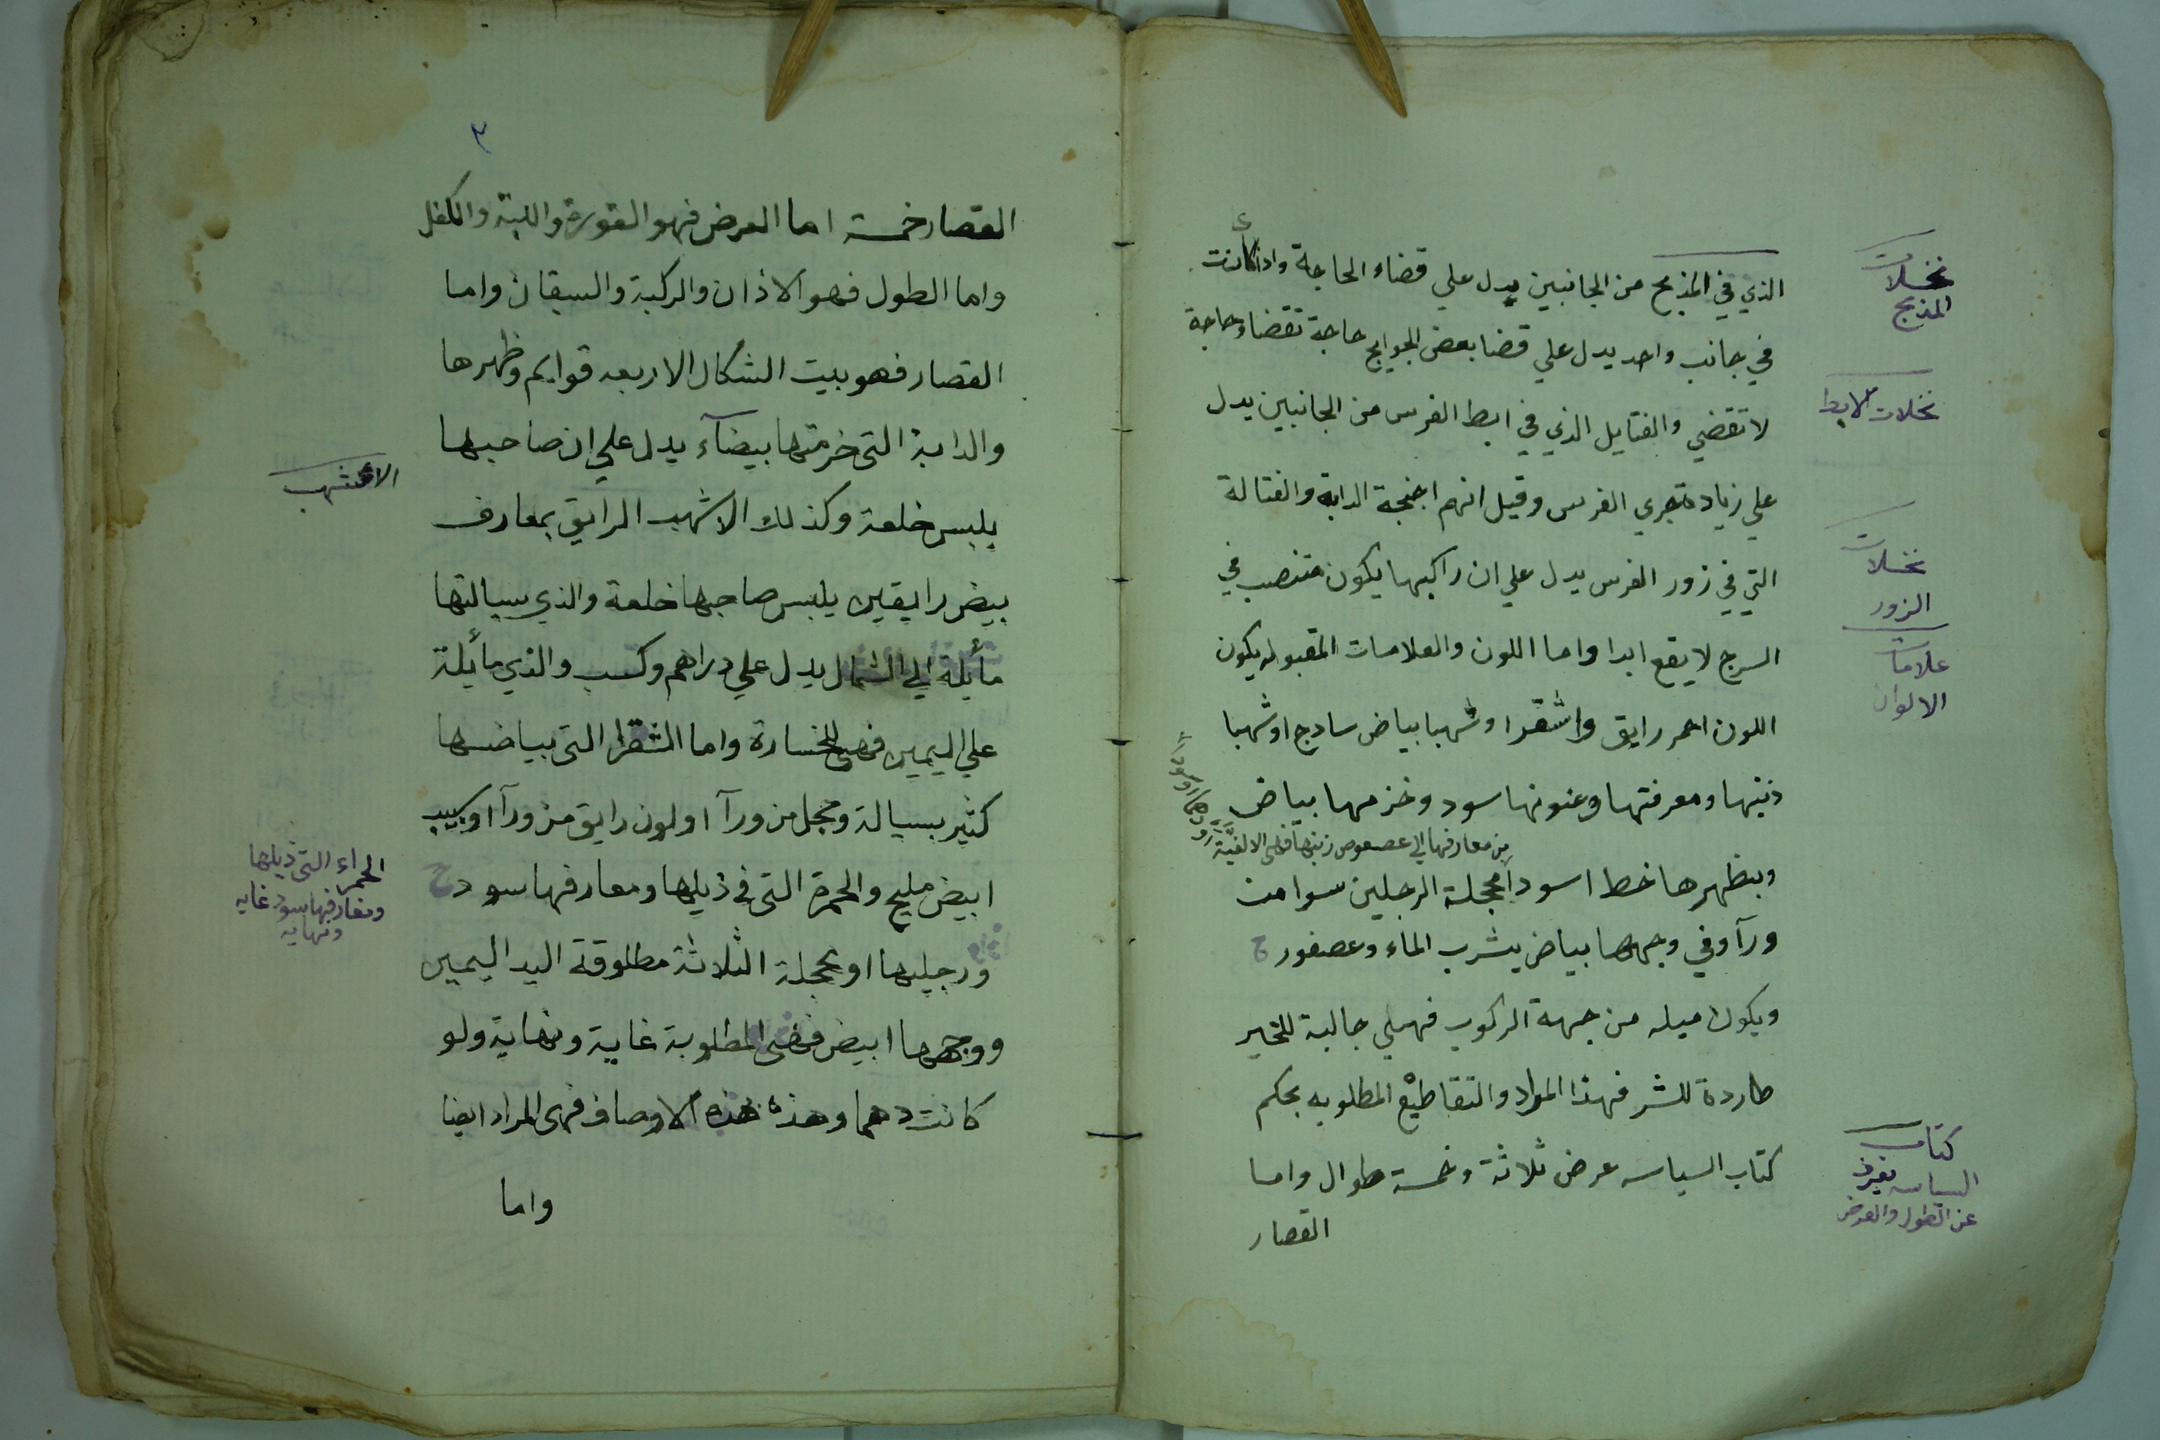 الذي في المذبح من الجانبين يدل علي قضاء الحاجة واذا كانت
في جانب واحد يدل علي قضا بعض الحوايج حاجة تقضا وحاجة
لا تقضي والفتايل الذي في ابط الفرس من الجانبين يدل
علي زيادة جري الفرس وقيل انهم اجنحة الدابة والفتالة
التي في زور الفرس يدل علي ان راكبها يكون منتصب في
السرج لا يقع ابدا واما اللون والعلامات المقبوله يكون
اللون احمر رايق واشقرا وشهبا بياض سادج او شهبا
ذنبها ومعرفتها وعنونها سود وخزمها بياض
من معارفها الي عصعوص زنبها فهي الالفية
وبظهرها خط اسود محجلة الرجلين سوا من
ورآ وفي وجهها بياض يشرب الماء وعصفور
ويكون ميله من جهة الركوب فهي جالبة للخير
طاردة للشر فهذا المراد والتقاطيع المطلوبه بحكم
كتاب السياسه عرض ثلاثة وخمسة طوال واما
القصار
نخلات
المذبح
نخلات الابط
نخلات
الزور
علامات
الالوان
كتاب
السياسه
عن الطول والعرض
٣
القصار خمسة اما العرض فهو القورة واللبة والكفل
واما الطول فهو الاذان والركبة والسيقان واما
القصار فهو بيت الشكال الاربعه قوايم وظهرها
والدابة التي خرمتها بيضآء يدل علي ان صاحبها
يلبس خلعة وكذلك الاشهب الرايق بمعارف
بيض رايقين يلبس صاحبها خلعة والذي سيالتها
مأيلة الي الشمال يدل علي دراهم وكسب والذي مأيلة
علي اليمين فهي للخسارة واما الشقرا التي بياضها
كثير بسيالة ومحجل من ورآ او لون رايق من ورآ او
ابيض مليح والحمرة التي في ذيلها ومعارفها سود
ورجليها او محجلة الثلاثة مطلوقة اليد اليمين
ووجهها ابيض فهي المطلوبة غاية ونهاية ولو
كانت دهما وهذه الاوصاف فهي المراد ايضا
واما
الاشهب
الحمراء التي ذيلها
ومعارفها سود غايه
ونهايه